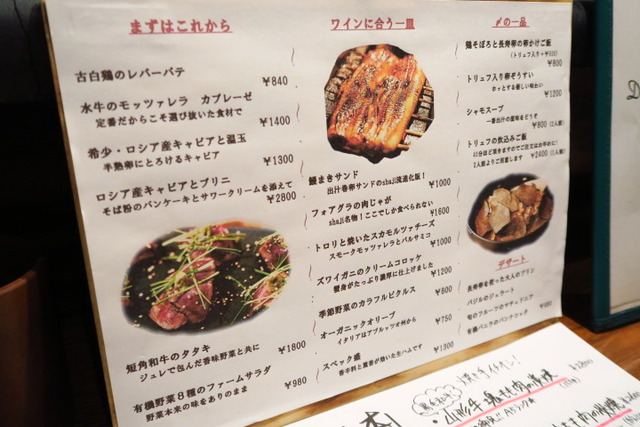 まずはこれから
古白鶏のレバーパテ
¥840
水牛のモッツァレラ カプレーゼ
定番だからこそ選び抜いた食材で
¥1400
希少・ロシア産キャビアと温玉
半熟卵にとろけるキャビア
¥1300
ロシア産キャビアとブリニ
そば粉のパンケーキとサワークリームを添えて
¥2800
短角和牛のタタキ
ジュレで包んだ香味野菜と共に
¥1800
有機野菜8種のファームサラダ
野菜本来の味をありのまま
¥980
ワインに合う一皿
鰻まきサンド
出汁巻卵サンドのshaji流進化版!
¥1000
フォアグラの肉じゃが
shaji名物!ここでしか食べられない
¥1600
トロリと焼いたスカモルツァチーズ
スモークモッツァレラとバルサミコ
¥1000
ズワイガニのクリームコロッケ
蟹身がたっぷり濃厚に仕上げました
¥1200
季節野菜のカラフルピクルス
¥600
オーガニックオリーブ
イタリアはアブルッツォ州から
¥750
スペック盛
香辛料と薫香が効いた生ハムです
¥1300
〆の一品
鶏そぼろと長寿卵の卵かけご飯
(トリュフ入り+¥500)
¥800
トリュフ入り卵ぞうすい
ホッとする優しい味わい
¥1200
シャモスープ
一番出汁の風味をどうぞ
¥800(2人前)
トリュフの炊込みご飯
2人前よりご用意します
¥2400(2人前)
デザート
長寿卵を使った大人のプリン
バジルのジェラート
旬のフルーツのマチェドニア
有機バニラのパンナコッタ